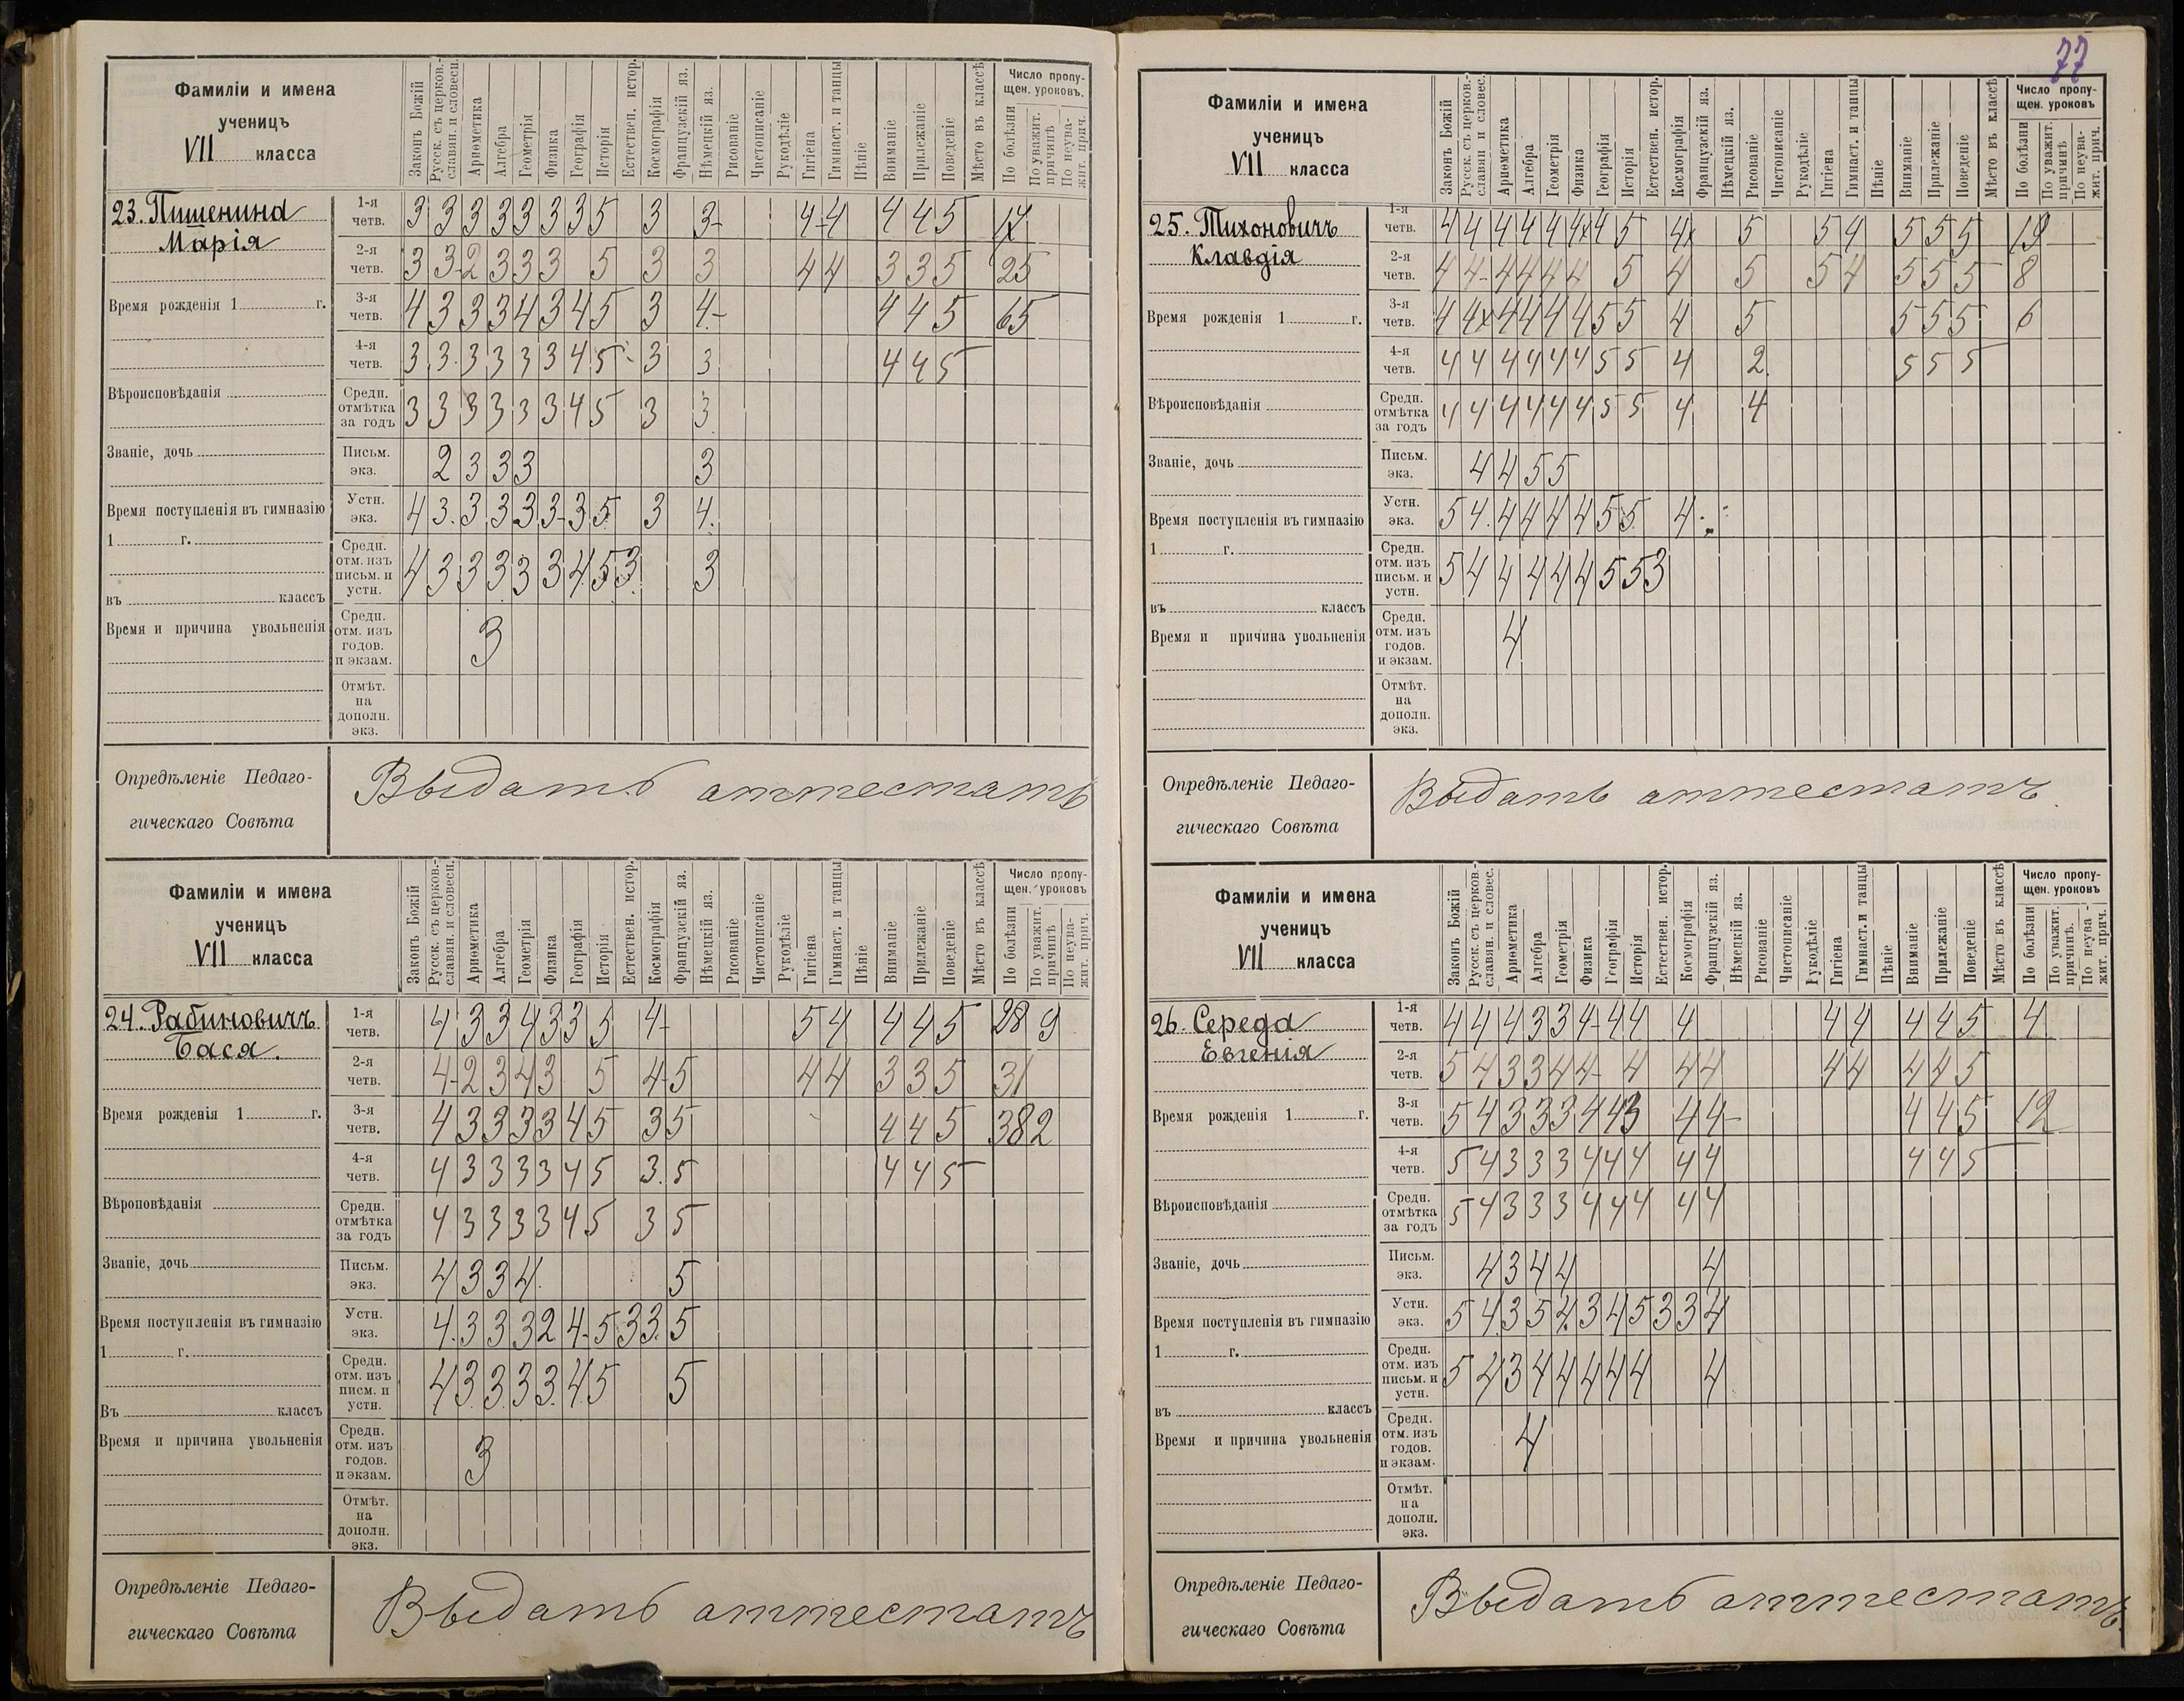 77
Фамиліи и имена
ученицъ
VII класса
Законъ Божій
Русск. съ церков.-
славян. и словесн.
Ариѳметика
Алгебра
Геометрія
Физика
Географія
Исторія
Естествен. истор.
Космографія
Французскій яз.
Нѣмецкій яз.
Рисованіе
Чистописаніе
Рукодѣліе
Гигіена
Гимнаст. и танцы
Пѣніе
Вниманіе
Прилежаніе
Поведеніе
Мѣсто въ классѣ
Число пропу-
щен. уроковъ.
По болѣзни
По уважит.
причинѣ
По неува-
жит. прич.
23. Пишенина
Марія
Время рожденія 1 г.
Вѣроисповѣданія
Званіе, дочь
Время поступленія въ гимназію
1 г.
въ классъ
Время и причина увольненія
1-я четв. 3 3 3 3 3 3 3 5 3 3- 4-4 4 4 5 17
2-я четв. 3 3-2 3 3 3 5 3 3 4 4 3 3 5 25
3-я четв. 4 3 3 3 4 3 4 5 3 4- 4 4 5 65
4-я четв. 3 3 3 3 3 3 4 5 3 3 4 4 5
Средн. отмѣтка за годъ 3 3 3 3 3 3 4 5 3 3
Письм. экз. 2 3 3 3 3
Устн. экз. 4 3. 3 3 3 3-3 5 3 4.
Средн. отм. изъ письм. и устн. 4 3 3 3 3 3 4 5 3 3
Средн. отм. изъ годов. и экзам. 3
Отмѣт. на дополн. экз.
Опредѣленіе Педаго-
гическаго Совѣта
Выдать аттестатъ
Фамиліи и имена
ученицъ
VII класса
Законъ Божій
Русск. съ церков.-
славян. и словесн.
Ариѳметика
Алгебра
Геометрія
Физика
Географія
Исторія
Естествен. истор.
Космографія
Французскій яз.
Нѣмецкій яз.
Рисованіе
Чистописаніе
Рукодѣліе
Гигіена
Гимнаст. и танцы
Пѣніе
Вниманіе
Прилежаніе
Поведеніе
Мѣсто въ классѣ
Число пропу-
щен. уроковъ
По болѣзни
По уважит.
причинѣ
По неува-
жит. прич.
24. Рабиновичъ
Бася.
Время рожденія 1 г.
Вѣроповѣданія
Званіе, дочь
Время поступленія въ гимназію
1 г.
Въ классъ
Время и причина увольненія
1-я четв. 4 3 3 4 3 3 5 4- 5 4 4 4 5 28 9
2-я четв. 4-2 3 4 3 5 4-5 4 4 3 3 5 31
3-я четв. 4 3 3 3 3 4 5 3 5 4 4 5 38 2
4-я четв. 4 3 3 3 3 4 5 3. 5 4 4 5
Средн. отмѣтка за годъ 4 3 3 3 3 4 5 3 5
Письм. экз. 4 3 3 4 5
Устн. экз. 4. 3 3 3 2 4-5 3 3. 5
Средн. отм. изъ писм. и устн. 4 3 3 3 3 4 5 5
Средн. отм. изъ годов. и экзам. 3
Отмѣт. на дополн. экз.
Опредѣленіе Педаго-
гическаго Совѣта
Выдать аттестатъ
Фамиліи и имена
ученицъ
VII класса
Законъ Божій
Русск. съ церков.-
славян и словес.
Ариѳметика
Алгебра
Геометрія
Физика
Географія
Исторія
Естествен. истор.
Космографія
Французскій яз.
Нѣмецкій яз.
Рисованіе
Чистописаніе
Рукодѣліе
Гигіена
Гимнаст. и танцы
Пѣніе
Вниманіе
Прилежаніе
Поведеніе
Мѣсто въ классѣ
Число пропу-
щен. уроковъ
По болѣзни
По уважит.
причинѣ
По неува-
жит. прич.
25. Тихоновичъ
Клавдія
Время рожденія 1 г.
Вѣроисповѣданія
Званіе, дочь
Время поступленія въ гимназію
1 г.
въ классъ
Время и причина увольненія
1-я четв. 4 4 4 4 4 4 4 5 4 5 5 4 5 5 5 19
2-я четв. 4 4-4 4 4 4 5 4 5 5 4 5 5 5 8
3-я четв. 4 4 4 4 4 4 5 5 4 5 5 5 5 6
4-я четв. 4 4 4 4 4 4 5 5 4 2 5 5 5
Средн. отмѣтка за годъ 4 4 4 4 4 4 5 5 4 4
Письм. экз. 4 4 5 5
Устн. экз. 5 4. 4 4 4 4 5 5 4
Средн. отм. изъ письм. и устн. 5 4 4 4 4 4 5 5 3
Средн. отм. изъ годов. и экзам. 4
Отмѣт. на дополн. экз.
Опредѣленіе Педаго-
гическаго Совѣта
Выдать аттестатъ.
Фамиліи и имена
ученицъ
VII класса
Законъ Божій
Русск. съ церков.-
славян. и словес.
Ариѳметика
Алгебра
Геометрія
Физика
Географія
Исторія
Естествен. истор.
Космографія
Французскій яз.
Нѣмецкій яз.
Рисованіе
Чистописаніе
Рукодѣліе
Гигіена
Гимнаст. и танцы
Пѣніе
Вниманіе
Прилежаніе
Поведеніе
Мѣсто въ классѣ
Число пропу-
щен. уроковъ
По болѣзни
По уважит.
причинѣ.
По неува-
жит. прич.
26. Середа
Евгенія
Время рожденія 1 г.
Вѣроисповѣданія
Званіе, дочь
Время поступленія въ гимназію
1 г.
въ классъ
Время и причина увольненія
1-я четв. 4 4 4 3 3 4-4 4 4 4 4 4 4 5 4
2-я четв. 5 4 3 3 4 4- 4 4 4 4 4 4 4 5
3-я четв. 5 4 3 3 3 4 4 3 4 4- 4 4 5 12
4-я четв. 5 4 3 3 3 4 4 4 4 4 4 4 5
Средн. отмѣтка за годъ 5 4 3 3 3 4 4 4 4 4
Письм. экз. 4 3 4 4 4
Устн. экз. 5 4 3 5 4 3 4 5 3 3 4
Средн. отм. изъ письм. и устн. 5 4 3 4 4 4 4 4 4
Средн. отм. изъ годов. и экзам. 4
Отмѣт. на дополн. экз.
Опредѣленіе Педаго-
гическаго Совѣта
Выдать аттестатъ.